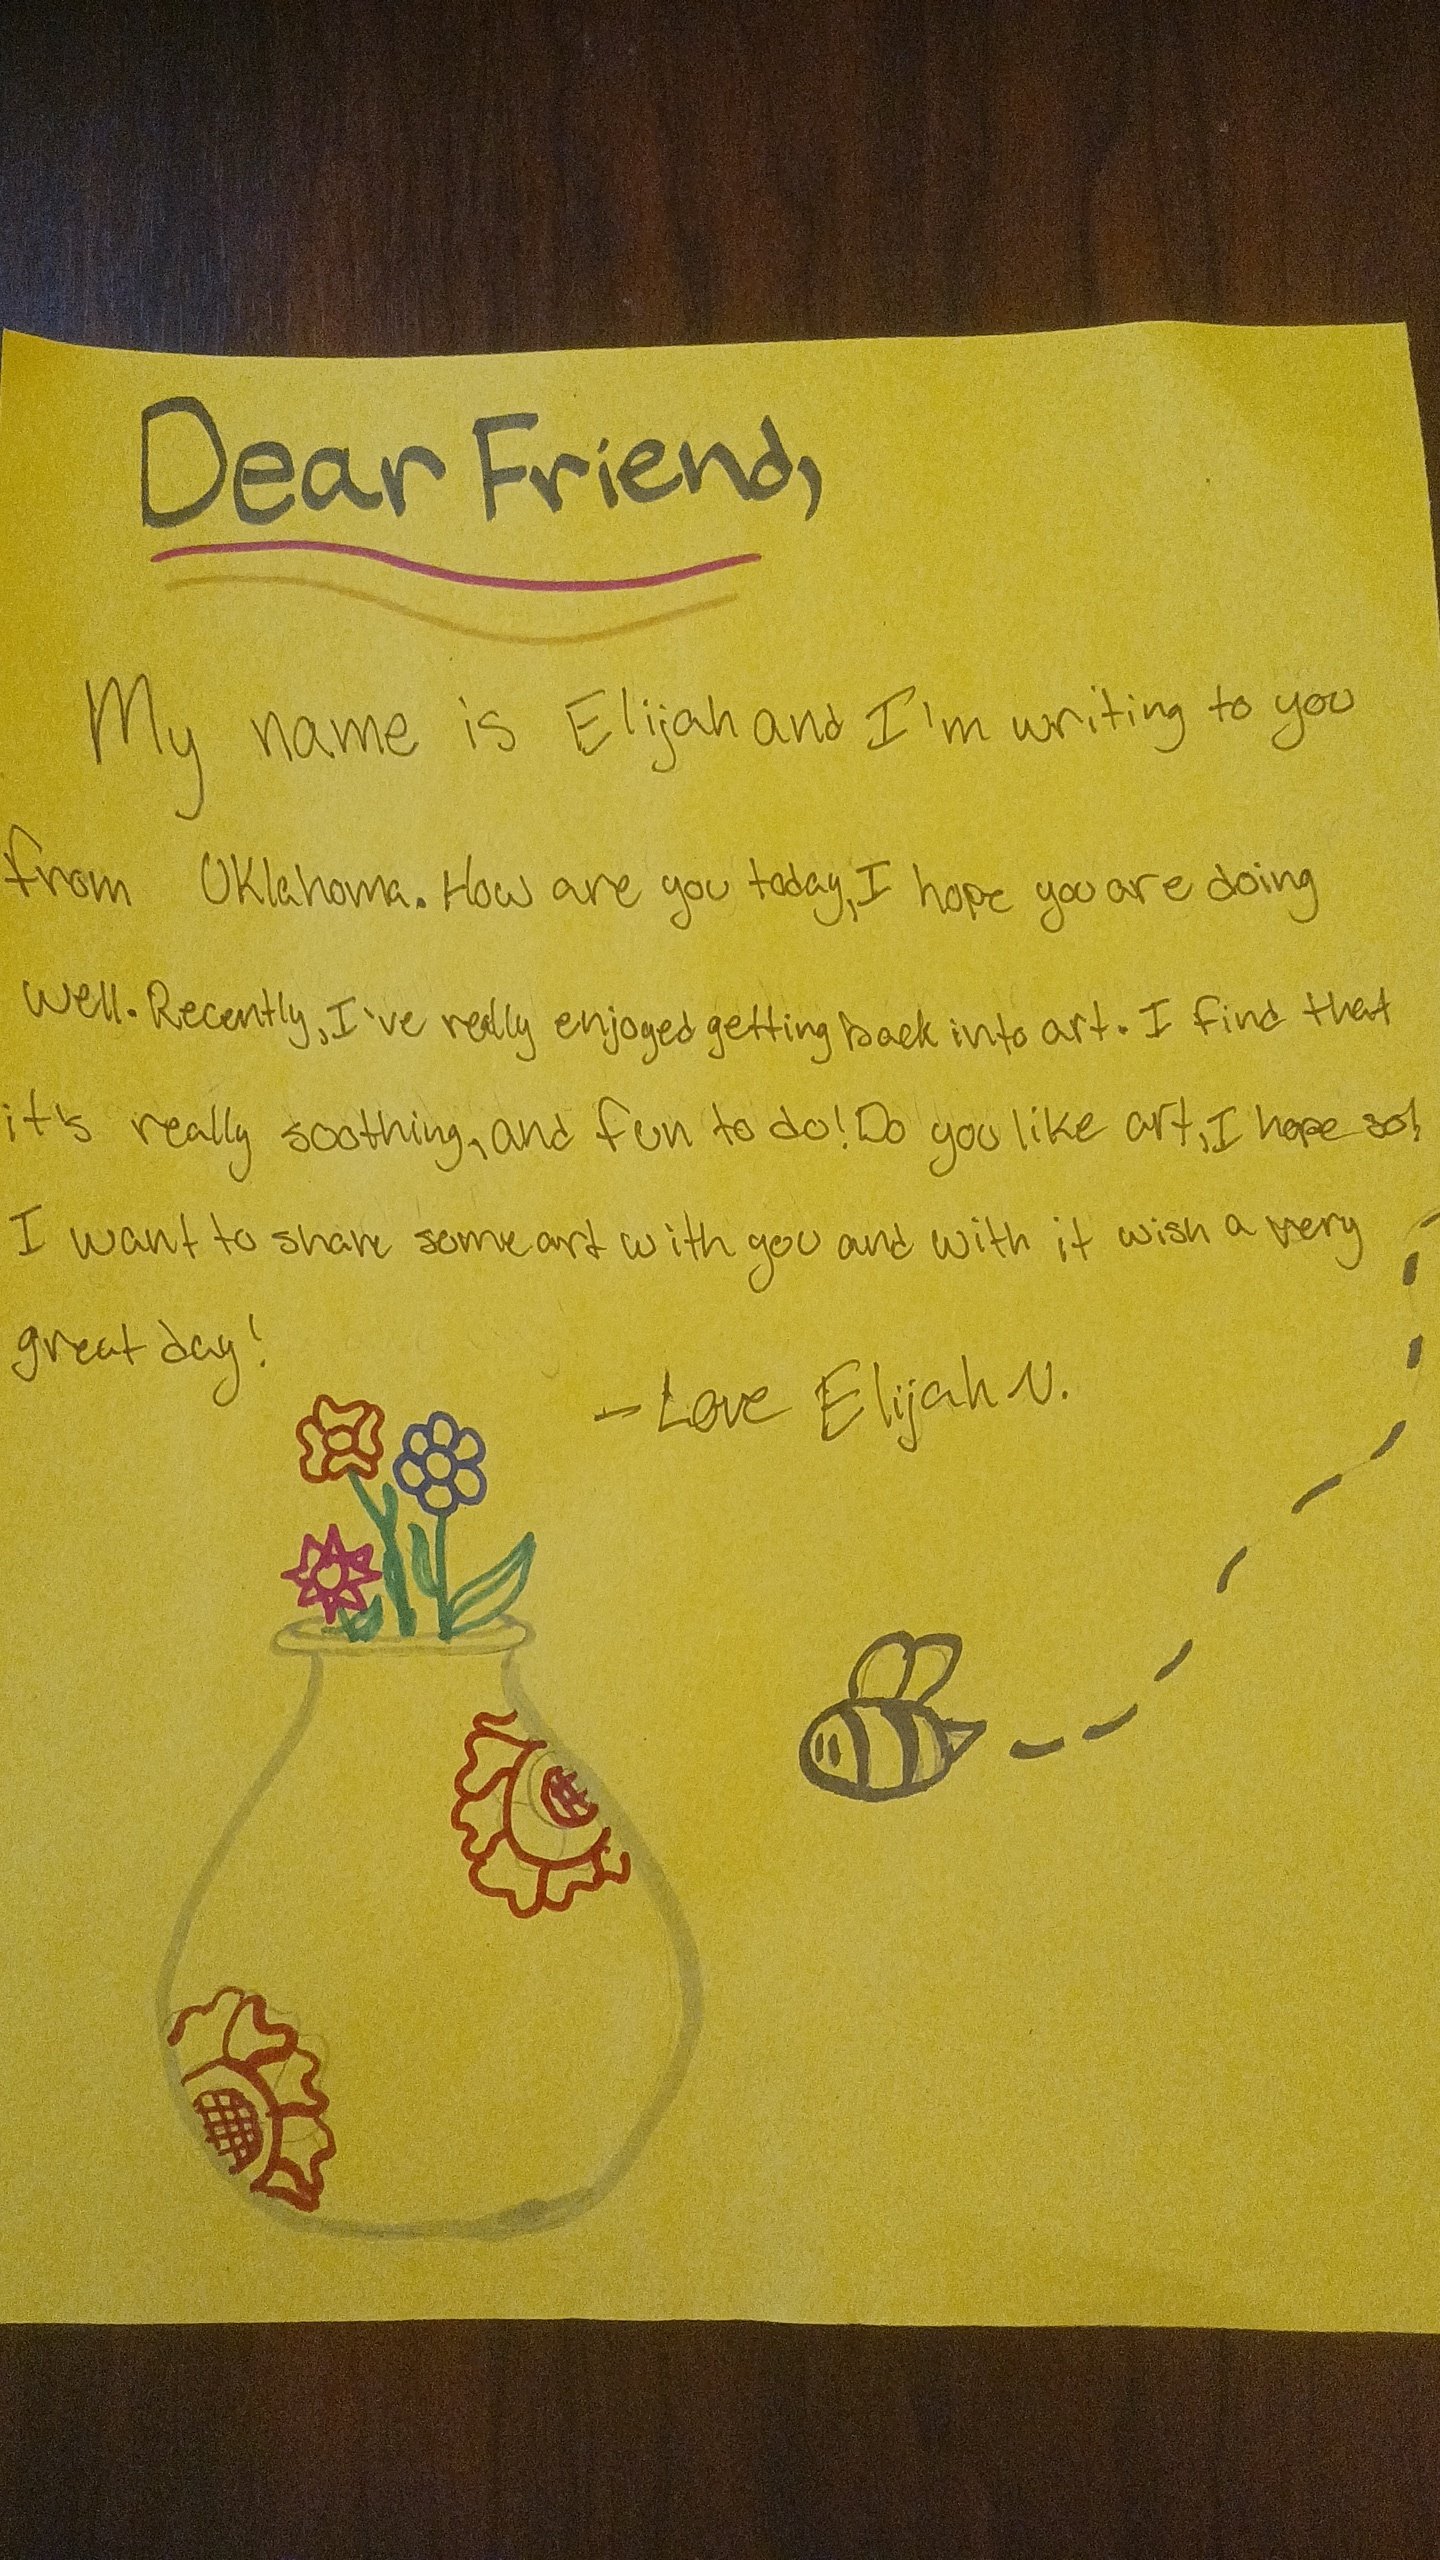 Dear Friend,
My name is Elijah and I'm writing to you
from Oklahoma. How are you today, I hope you are doing
well. Recently, I've really enjoyed getting back into art. I find that
it's really soothing, and fun to do! Do you like art, I hope so!
I want to share some art with you and with it wish a very
great day!
- Love Elijah N.